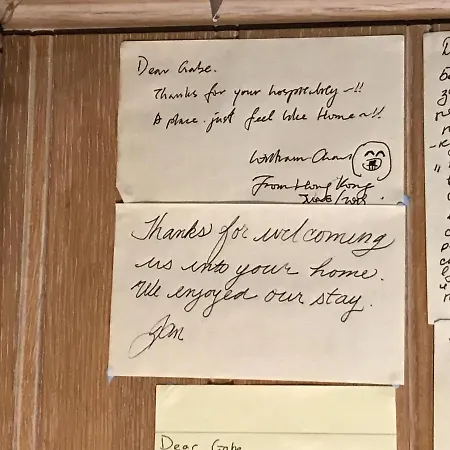 Dear Gabe.
Thanks for your hospitality ~!!
A place just feel like Home ~!!
William Chan
From Hong Kong
Thanks for welcoming
us into your home.
We enjoyed our stay.
Dear Gabe